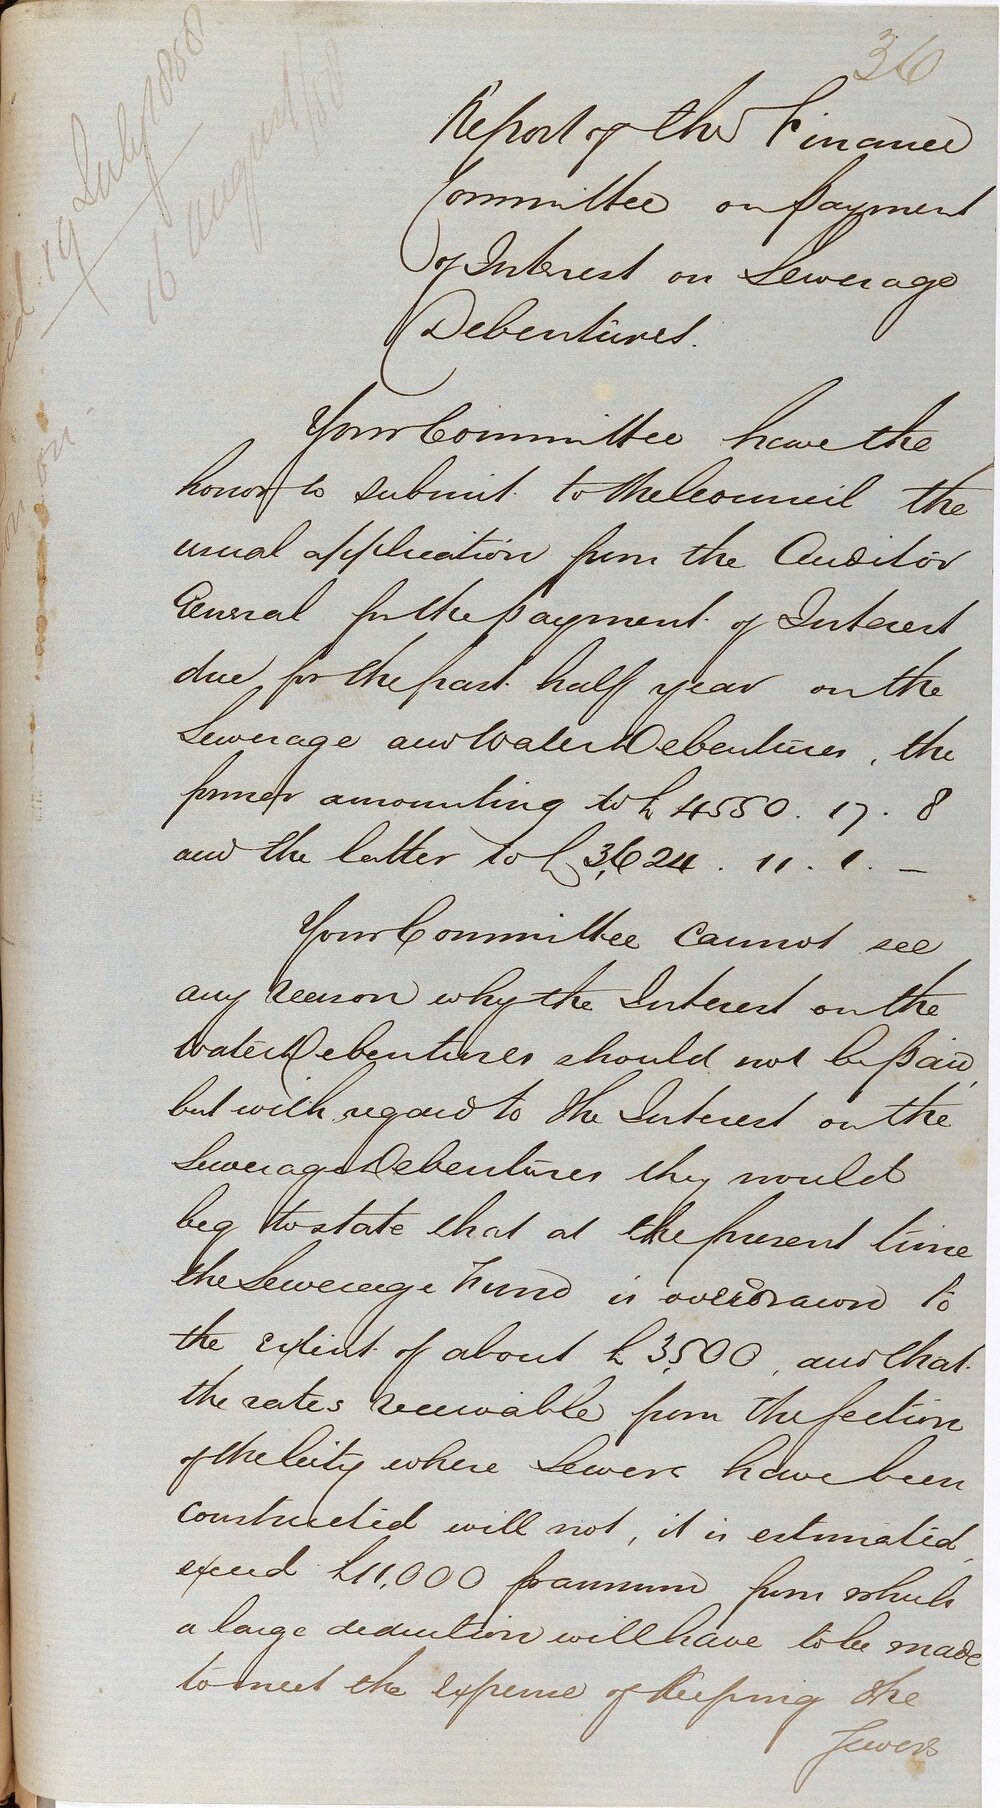 36
19 July 1858
16 August/58
Report of the Finance
Committee on payment
of Interest on Sewerage
Debentures.
Your Committee have the
honor to submit to the Council the
usual application from the Auditor
General for the payment of Interest
due for the past half year on the
Sewerage and Water Debentures, the
former amounting to £4550. 17. 8
and the latter to £3,624. 11. 1. —
Your Committee cannot see
any reason why the Interest on the
Water Debentures should not be paid,
but with regard to the Interest on the
Sewerage Debentures they would
beg to state that at the present time
the Sewerage Fund is overdrawn to
the extent of about £3,500, and that
the rates receivable from the section
of the City where Sewers have been
constructed will not, it is estimated,
exceed £11,000 pr annum from which
a large deduction will have to be made
to meet the expense of keeping the
Sewers